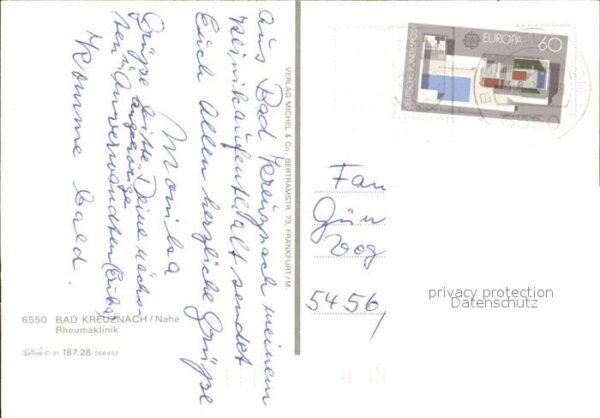 Aus Bad Kreuznach meinem
Klinikaufenthalt sendet
Euch Allen herzliche Grüße
Monika
Grüße bitte Deine nächs-
ten Angehörige
Anverwandten
Komme bald.
VERLAG MICHEL & Co., BERTRAMSTR. 73, FRANKFURT/M.
6550 BAD KREUZNACH / Nahe
Rheumaklinik
C 31 187.28
DEUTSCHE BUNDESPOST
EUROPA 60
5456
privacy protection
Datenschutz